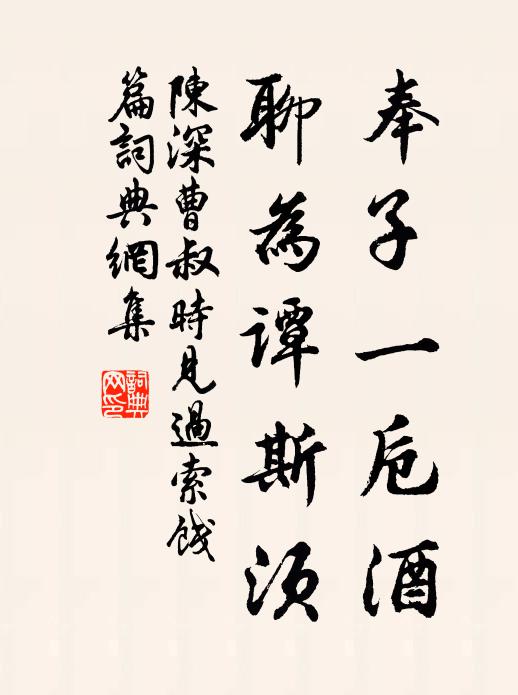 奉子一卮酒
聊為譚斯須
陳深曹叔時見過索餞
篇詞典網集
詞典網印